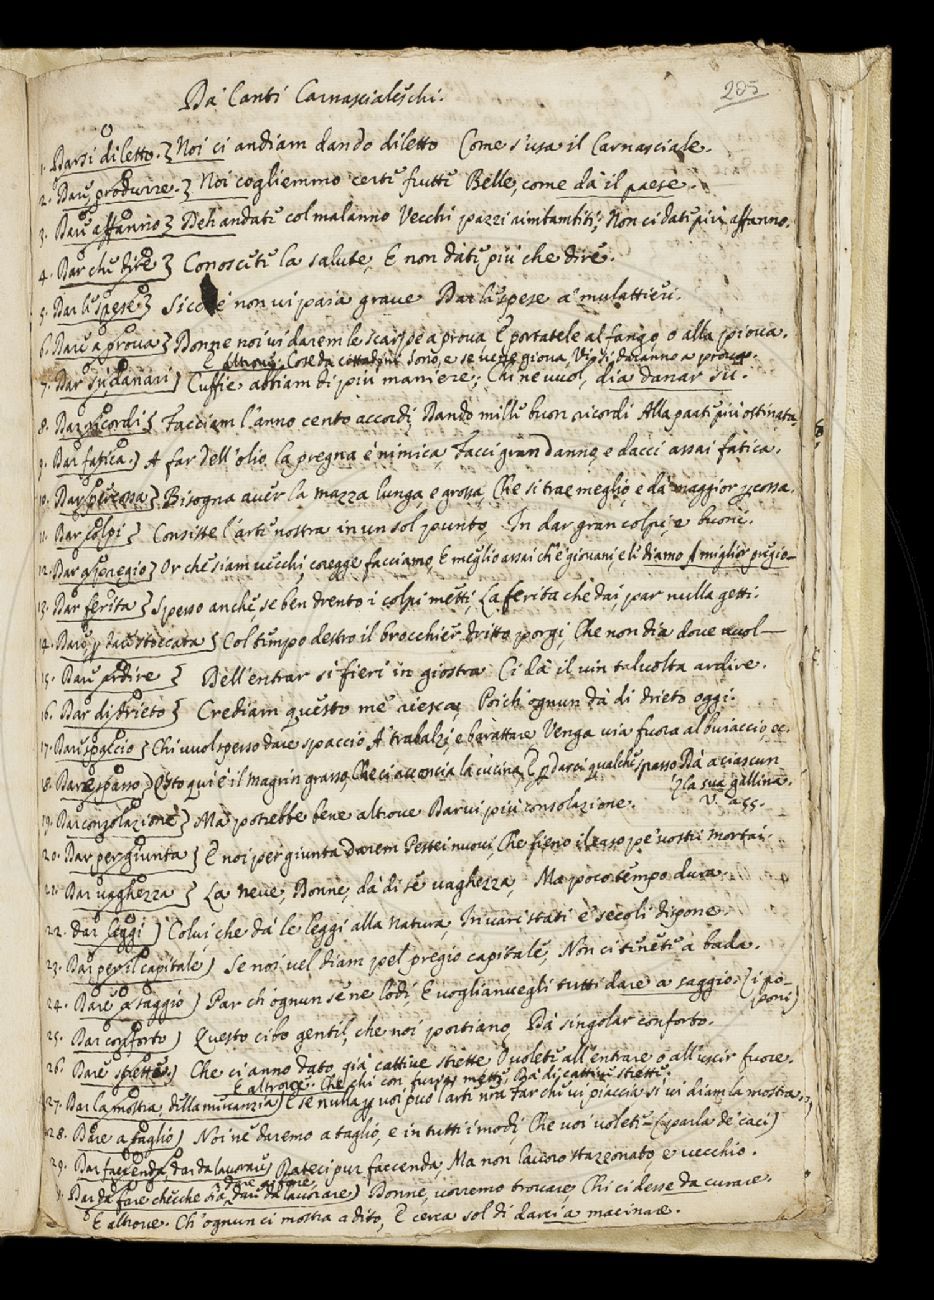 Da' Canti Carnascialeschi.
205
1. Darsi diletto. } Noi ci andiam dando diletto Come s'usa il Carnasciale.
2. Dare, produrre. } Noi cogliemmo certi frutti Belle, come dà il paese.
3. Dare affanno } Deh andate col malanno Vecchi pazzi rimbambiti; Non ci date più affanno.
4. Dar che dire } Conoscete la salute, E non date più che dire.
5. Dar le spese } Sicchè non vi paia grave Dar le spese a' mulattieri.
6. Dare a prova } Donne noi vi darem le scarpe a prova E portatele al fango, o alla piova.
E altrove. Cose da cittadine sono, e se
7. Dar su, danari } Cuffie abbiam di più maniere; Chi ne vuol, dia danar su.
8. Dar ricordi } Facciam l'anno cento accordi, Dando mille buon ricordi Alla parte più ostinata
9. Dar fatica. } A far dell'olio, la pregna è nimica, Facci gran danno, e dacci assai fatica.
10. Dar percossa } Bisogna aver la mazza lunga, e grossa, Che si trae meglio, e dà maggior pcossa.
11. Dar colpi } Consiste l'arte nostra in un sol punto, In dar gran colpi, e buoni.
12. Dar p pregio } Or che siam vecchi, coregge facciamo, E meglio assai ch'e giovani, e le diamo p miglior pregio
13. Dar ferita } Spesso anche, se ben drento i colpi metti, La ferita che dai, par nulla getti.
14. Dare, p dare stoccata } Col tempo destro il brocchier dritto porgi, Che non dia dove vuol
15. Dare ardire } Bell'entrar si fieri in giostra Ci dà il vin talvolta ardire.
16. Dar di drieto } Crediam questo me' riesca, Poichè ognun dà di drieto oggi.
17. Dare spaccio } Chi vuol spesso dare spaccio, A trabalzi, e barattare, Venga via fuora al buiaccio, ec.
18. Dare spasso } Costo qui è il magrin grasso, Che ci acconcia la cucina, E p Darci qualche spasso Dà a ciascun
la sua gallina.
V. a 55.
19. Dar consolazione } Ma potrebbe bene altrove Darvi più consolazione.
20. Dar per giunta } E noi per giunta darem Pestei nuovi, Che fieno il caso pe' vostri mortai.
21. Dar vaghezza } La neve, Donne, dà di sè vaghezza, Ma poco tempo dura.
22. dar leggi } Colui che dà le leggi alla natura, In vari stati e secoli dispone.
23. Dar per il capitale } Se noi vel diam pel pregio capitale, Non ci tenete a bada.
24. Dare a saggio } Par ch'ognun se ne lodi, E voglianvegli tutti dare a saggio. (i po-
poni)
25. Dar conforto } Questo cibo gentil, che noi portiano, Dà singolar conforto.
26. Dare strette } Che ci anno dato già cattive strette O volete all'entrare o all'uscir fuore.
E altrove. Che chi con furia mette, Dà di cattive strette.
27. Dar la mostra, della mercanzia } E se nulla p voi può l'arte nra Far che vi piaccia, si vi diam la mostra.
28. Dare a taglio } Noi ne daremo a taglio, e in tutti i modi Che voi volete (parla de' caci)
29. Dar faccenda, dar da lavorare } Dateci pur faccenda, Ma non lavoro stazzonato, e vecchio.
Dar da fare checchessia, dare da lavorare } Donne, vorremo trovare, Chi ci desse da curare.
E altrove. Ch'ognun ci mostra a dito, E cerca sol di darci a macinare.